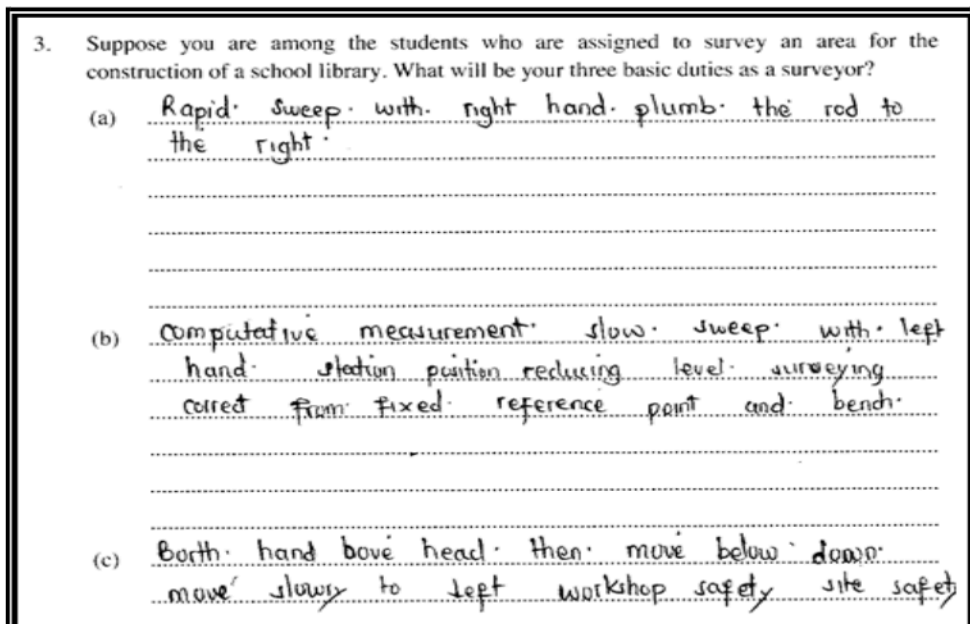 3. Suppose you are among the students who are assigned to survey an area for the
construction of a school library. What will be your three basic duties as a surveyor?
(a) Rapid. sweep. with. right hand. plumb. the rod to
the right.
(b) computative measurement. slow. sweep. with. left
hand. station position reducing level. surveying
correct from fixed. reference point and. bench.
(c) Borth. hand bove head. then. move below. down.
move slowry to left workshop safety site safety